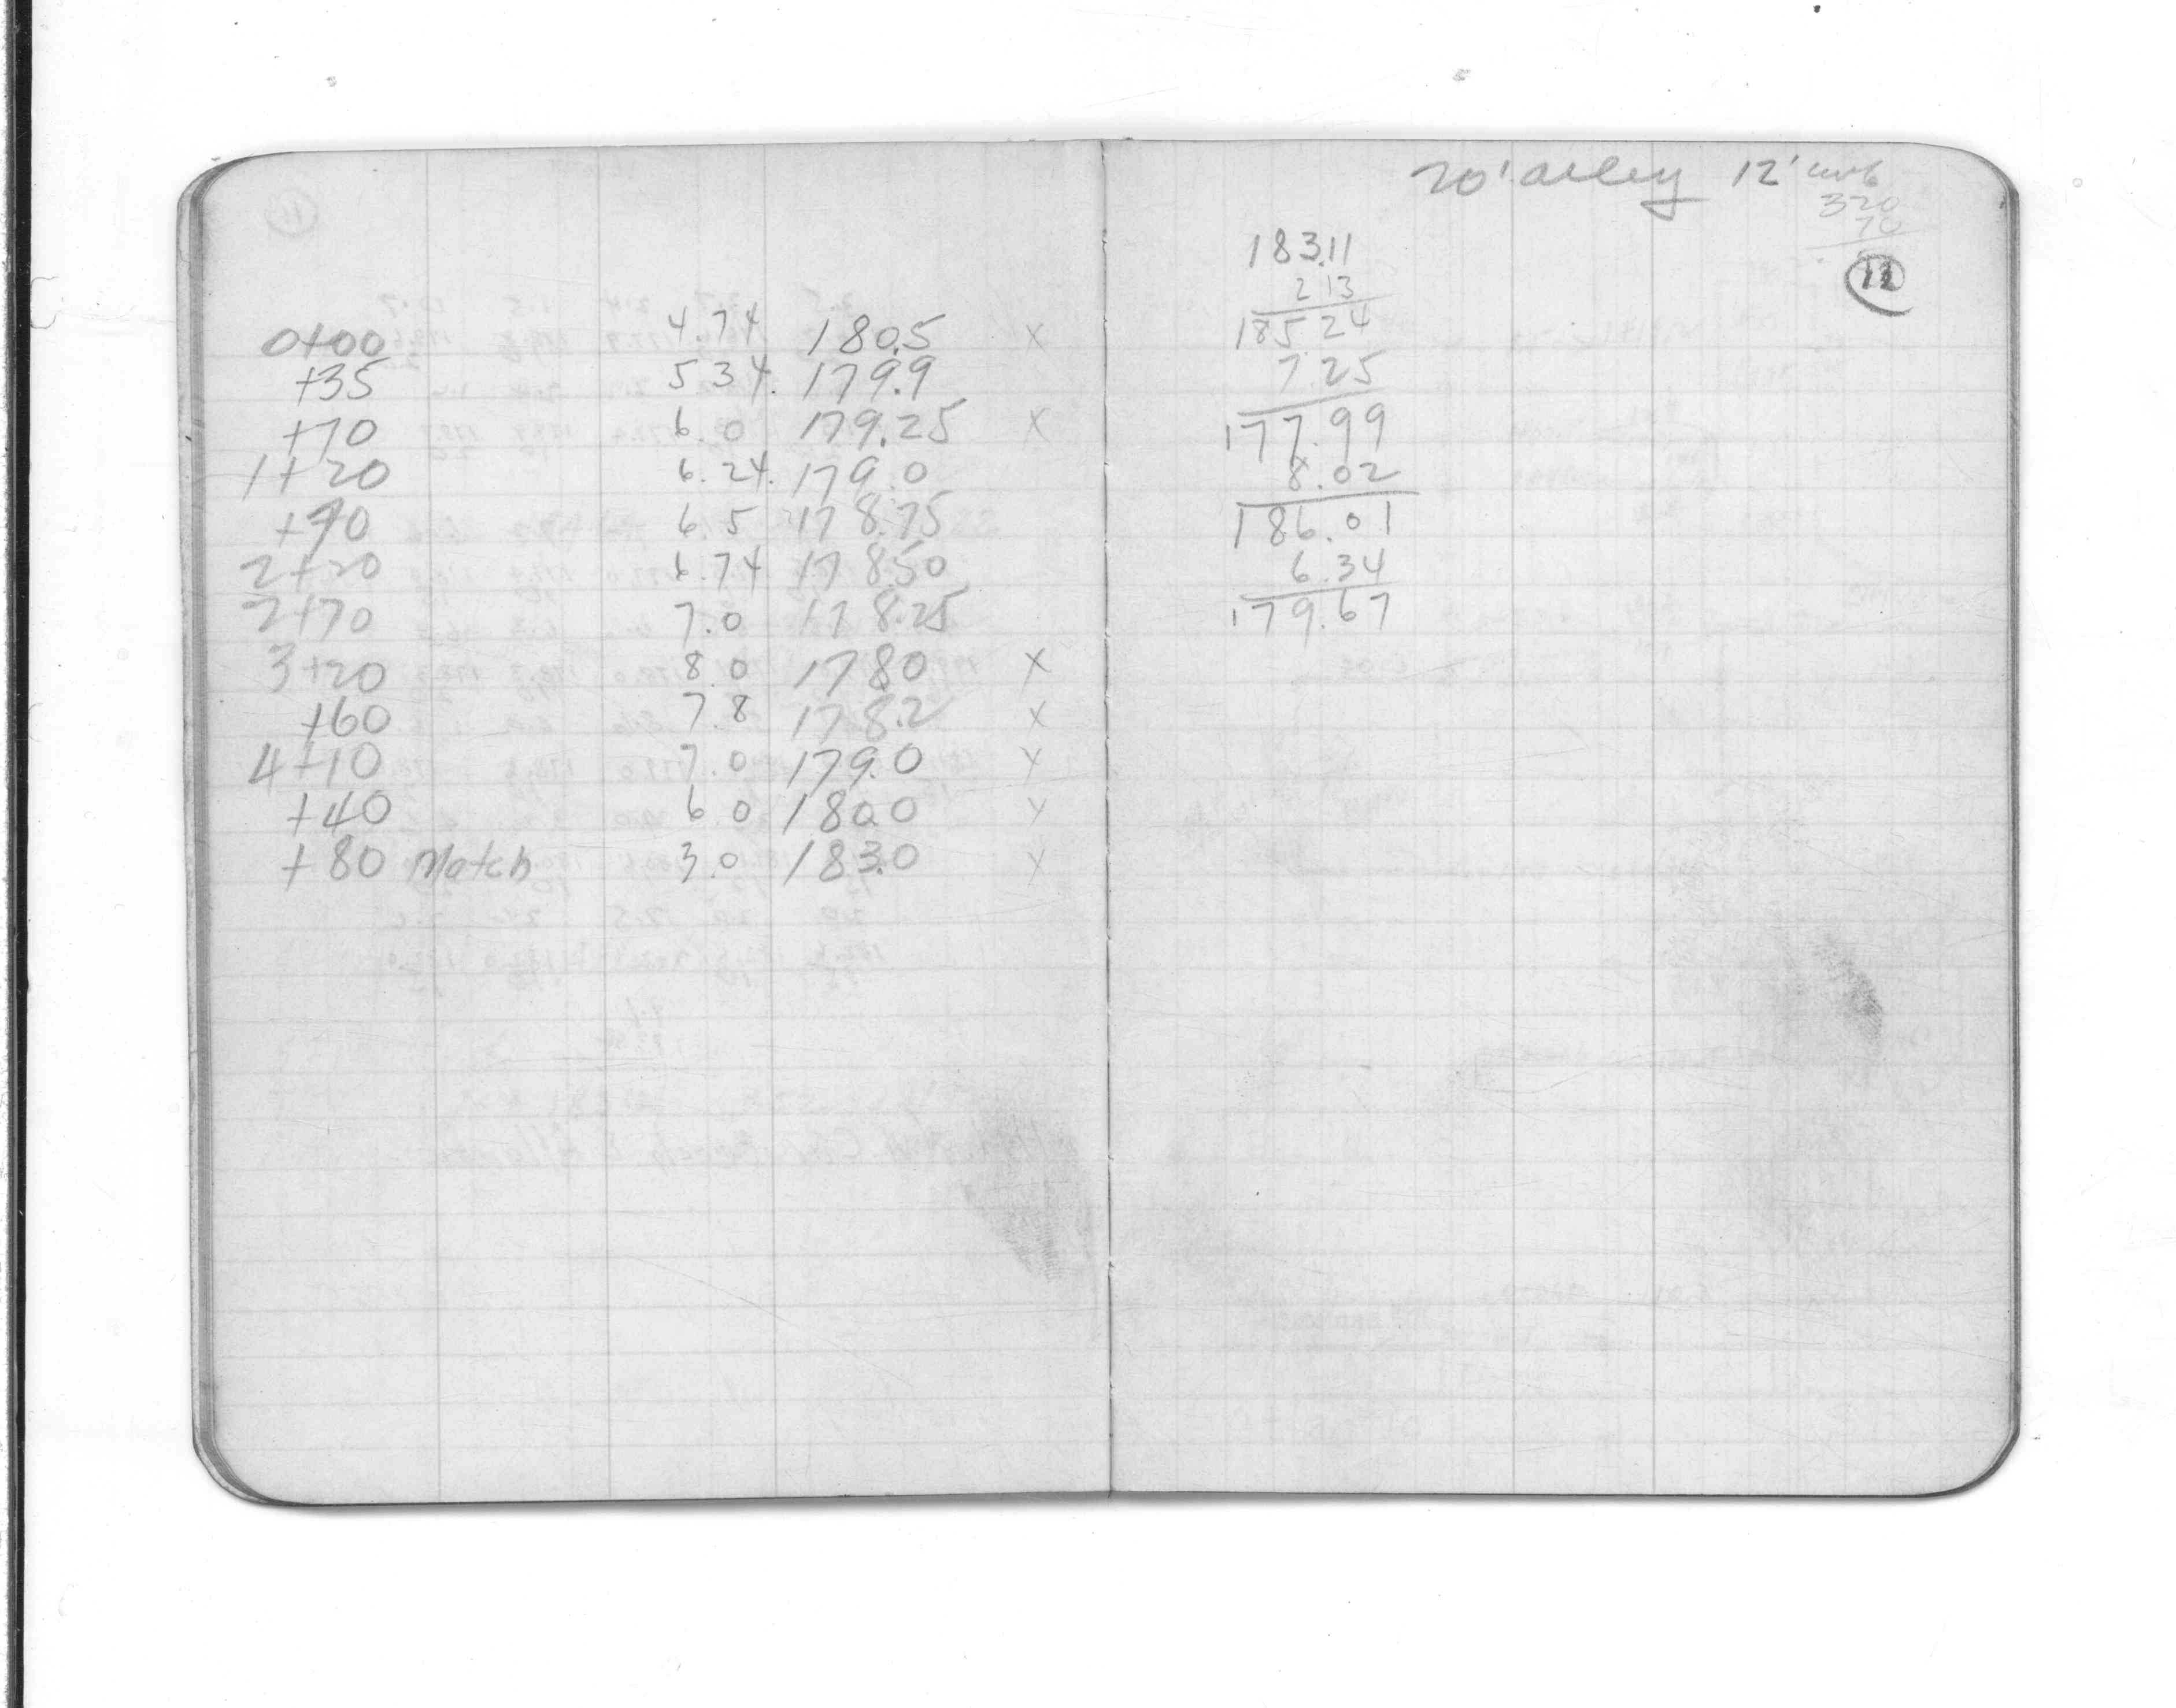 0+00 4.74 180.5 x
+35 5.34 179.9
+70 6.0 179.25 x
1+20 6.24 179.0
+70 6.5 178.75
2+20 6.74 178.50
2+70 7.0 178.25
3+20 8.0 178.0 x
+60 7.8 178.2 x
4+10 7.0 179.0 x
+40 6.0 180.0 x
+80 Match 3.0 183.0 x
20' alley 12' curb
320
70
183.11
2 13
185 24
7.25
177.99
8.02
186.01
6.34
179.67